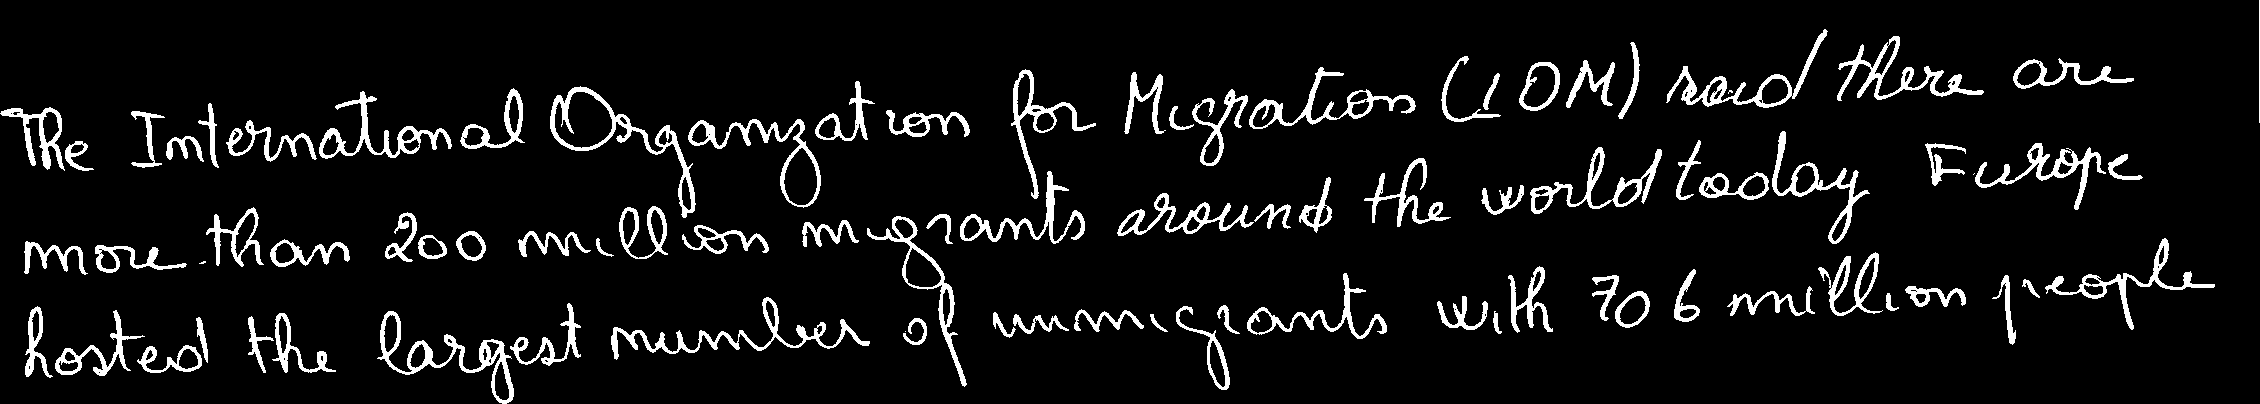 The International Organization for Migration (IOM) said there are
more than 200 million migrants around the world today Europe
hosted the largest number of immigrants with 70 6 million people